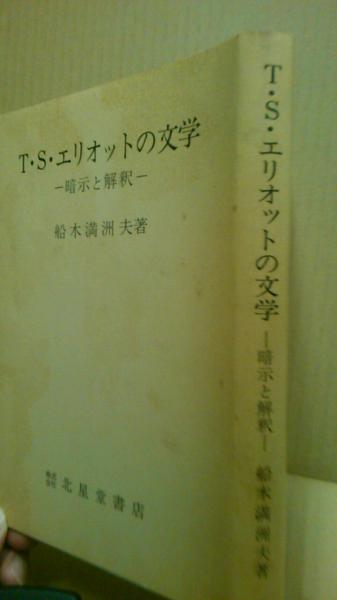 T・S・エリオットの文学
―暗示と解釈―
船木満洲夫著
株式会社 北星堂書店
T・S・エリオットの文学―暗示と解釈― 船木満洲夫著